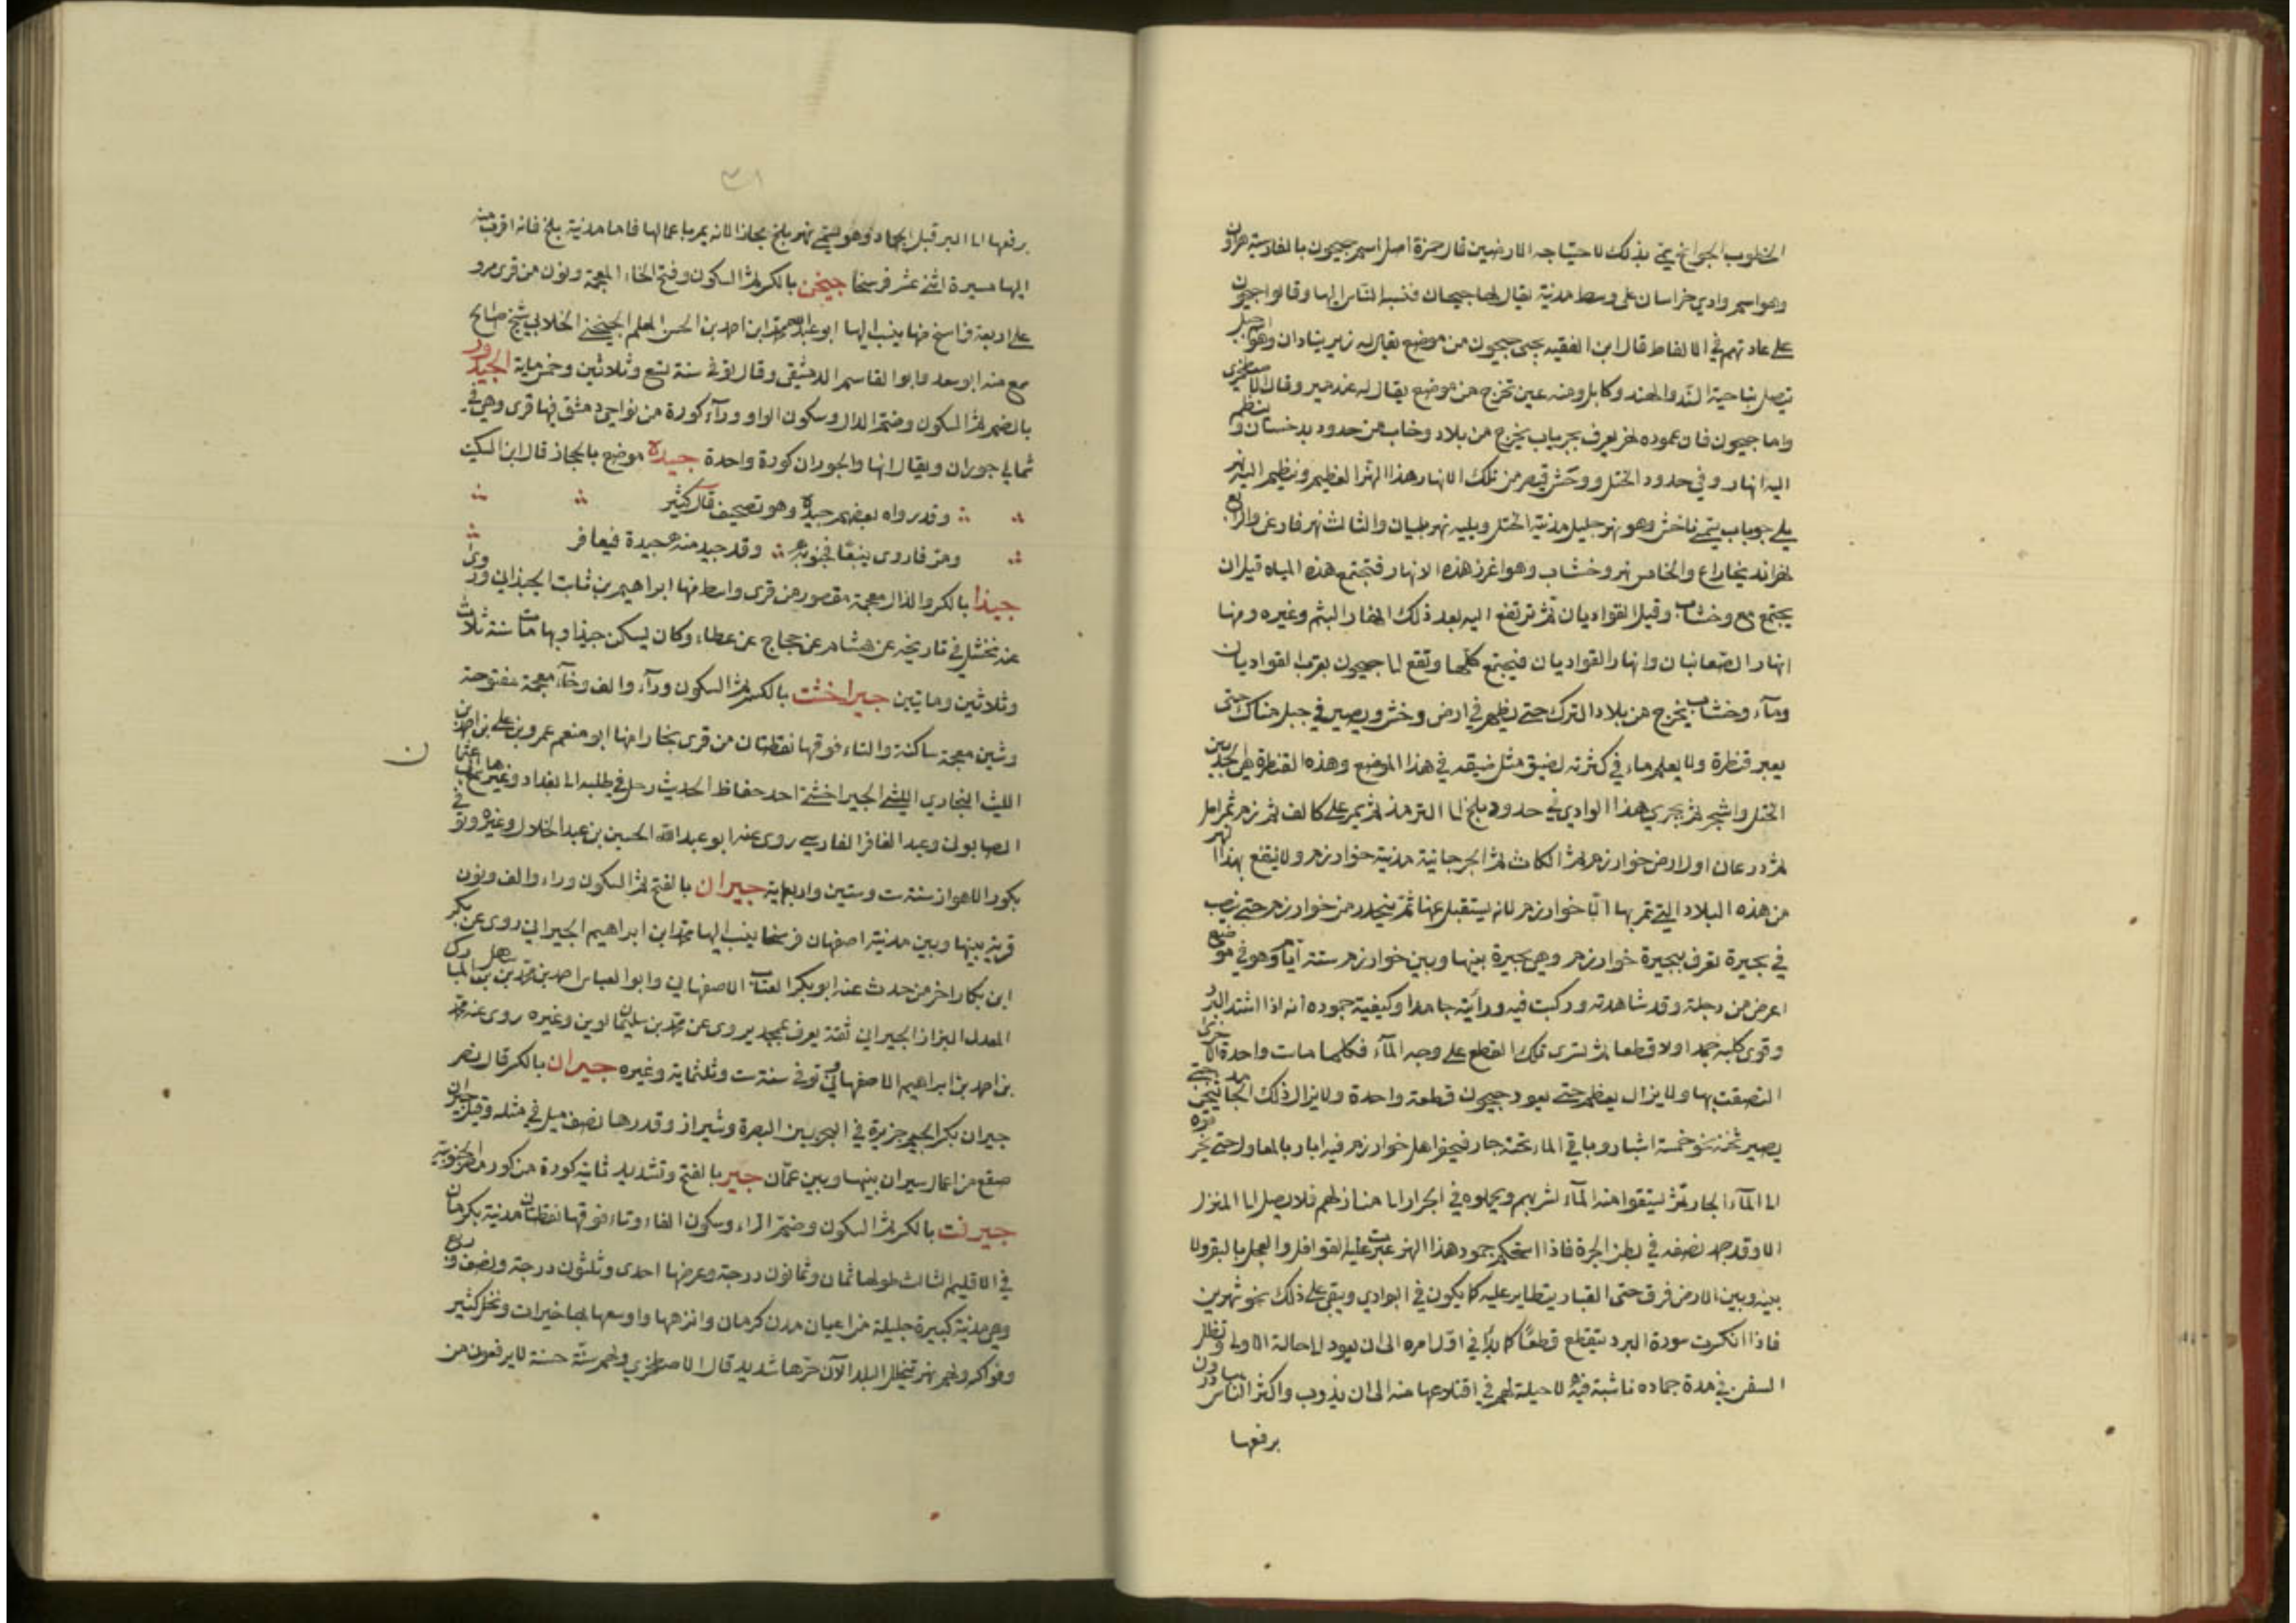 الخطوب الجوائح يتم بذلك لاحتياجه الارضين قال حمزة اصل اسم جيحون بالفارسية هرون
وهو اسم وادي خراسان على وسط مدينة يقال لها جيحان فنسبه الناس اليها وقالوا جيحون
على عادتهم في الالفاظ قال ابن الفقيه يجي جيحون من موضع يقال له ريوساران وهو جبل
يتصل بناحية السند والهند وكابل ومنه عين تخرج من موضع يقال له عندمير وقال الاصطخري
واما جيحون فان عموده نهر يعرف بجرياب يخرج من بلاد وخاب من حدود بدخشان وينظم
اليه انهار في حدود الختل ووخش فيصير من تلك الانهار هذا النهر العظيم وينظم اليه نهر
يلي جوباب يسمى باخش وهو نهر جليل مدينة الختل ويليه نهر بلبان والثالث نهر فارغر والرابع
نهر انديخاراع والخامس نهر وخشاب وهو اغزر هذه الانهار فتجتمع هذه المياه قبل ان
يجتمع مع وخشاب وقبل القواديان ثم ترتفع اليه بعد ذلك انهار البتم وغيره ومنها
انهار الصغانيان وانهار القواديان فيجتمع كلها وتقع الى جيحون بقرب القواديان
وماء وخشاب يخرج من بلاد الترك حتى يظهر في ارض وخش ويصير في جبل هناك حتى
يعبر قنطرة ولا يعلم ماء في كثرته يضيق مثل ضيقه في هذا الموضع وهذه القنطرة هي الحد بين
الختل واشجرد ثم يجري هذا الوادي في حدود بلخ الى الترمذ ثم يمر على كالف ثم زم ثم امل
ثم درعان اول ارض خوارزم ثم الكاث ثم الجرجانية مدينة خوارزم ولا ينتفع بهذا النهر
من هذه البلاد التي تمر بها الا خوارزم لانه يستقبل عنها ثم ينحدر من خوارزم حتى ينصب
في بحيرة تعرف ببحيرة خوارزم وهي بحيرة بينها وبين خوارزم ستة ايام وهو في موضع
اعرض من دجلة وقد شاهدته وركبت فيه ورأيته جامدا وكيفية جموده انه اذا اشتد البرد
وقوى كلبه جمد اولا قطعا ثم تسرى تلك القطع على وجه الماء فكلما ماست واحدة الاخرى
التصقت بها ولا يزال يعظم حتى يعود جيحون قطعة واحدة ولا يزال ذلك الجامد يثخن حتى
يصير ثخنه نحو خمسة اشبار وباقي الماء تحته جار فيحفر اهل خوارزم فيه ابار بالمعاول حتى يخرقوه
الى الماء الجاري ثم يستقوا منه الماء لشربهم ويحملوه في الجرار الى منازلهم فلا يصل الى المنزل
الا وقد جمد نصفه في بطن الجرة فاذا استحكم جمود هذا النهر عبرت عليه القوافل والعجل بالبقر ولا
بينه وبين الارض فرق حتى الغبار يتطاير عليه كما يكون في البوادي ويبقى على ذلك نحو شهرين
فاذا انكسرت سورة البرد يتقطع قطعا كما بدأ في اول امره الى ان يعود الى حالته الاولى وتظل
السفن في مدة جماده ناشبة فيه لا حيلة لهم في اقتلاعها منه الى ان يذوب واكثر الناس يبادرون
برفعها
٣١
برفعها الى البر قبل الجماد وهو يسمى نهر بلخ مجازا لانه يمر باعمالها فاما مدينة بلخ فانه اقرب منه
اليها مسيرة اثنى عشر فرسخا جيخن بالكسر ثم السكون وفتح الخاء المعجمة ونون من قرى مرو
على اربعة فراسخ منها ينسب اليها ابو عبد الله محمد ابن احمد بن الحسن المعلم الجيخني الخلالي شيخ صالح
سمع منه ابو سعد وابو القاسم الدمشقي وقال توفي سنة تسع وثلاثين وخمسماية الجيدور
بالضم ثم السكون وضم الدال وسكون الواو وراء كورة من نواحي دمشق فيها قرى وهي في
شمالي حوران ويقال انها والجودران كورة واحدة جيدة موضع بالحجاز قال ابن السكيت
وقد رواه بعضهم حيدة وهو تصحيف قال كثير
ومر فاروى ينبعا فجنوبه وقد جيد منه جيدة فعباثر
جيذا بالكسر والذال معجمة مقصور من قرى واسط منها ابراهيم بن ثابت الجيذاني روى
عنه بخشل في تاريخه عن هشام عن حجاج عن عطاء وكان يسكن جيذا وبها مات سنة ثلاث
وثلاثين ومايتين جيراخشت بالكسر ثم السكون وراء والف وخاء معجمة مفتوحة
وشين معجمة ساكنة والتاء فوقها نقطتان من قرى بخارا منها ابو منعم عمرو بن علي بن احمد بن
الليث البخاري الليثي الجيراخشتي احد حفاظ الحديث رحل في طلبه الى بغداد وغيرها
الصابوني وعبد الغافر الفارسي روى عنه ابو عبد الله الحسين بن عبد الملك الخلال وغيره وتوفي
بكور الاهواز سنة ست وستين واربعماية جيران بالفتح ثم السكون وراء والف ونون
قرية بينها وبين مدينة اصفهان فرسخا ينسب اليها محمد ابن ابراهيم الجيراني روى عن بكر
ابن بكار اخر من حدث عنه ابو بكر العتاب الاصفهاني وابو العباس احمد بن محمد بن سهل بن المبارك
المعدل البزاز الجيراني ثقة يعرف بمجد يروى عن محمد بن سليمان لوين وغيره روى عنه محمد
بن احمد بن ابراهيم الاصفهاني توفي سنة ست وثلثماية وغيره جيران بالكسر قال نصر
جيران بكسر الجيم جزيرة في البحر بين البصرة وشيراز وقدرها نصف ميل في مثله وقيل جيران
صقع من اعمال سيراف بينها وبين عمان جير بالفتح وتشديد ثانيه كورة من كور مصر الجنوبية
جيرفت بالكسر ثم السكون وضم الراء وسكون الفاء وتاء فوقها نقطتان مدينة بكرمان
في الاقليم الثالث طولها ثمان وثمانون درجة وعرضها احدى وثلثون درجة ونصف وربع
وهي مدينة كبيرة جليلة من اعيان مدن كرمان وانزهها واوسعها بها خيرات ونخل كثير
وفواكه ولهم نهر يتخلل البلد الا ان حرها شديد قال الاصطخري ولهم سنة حسنة لا يرفعون من